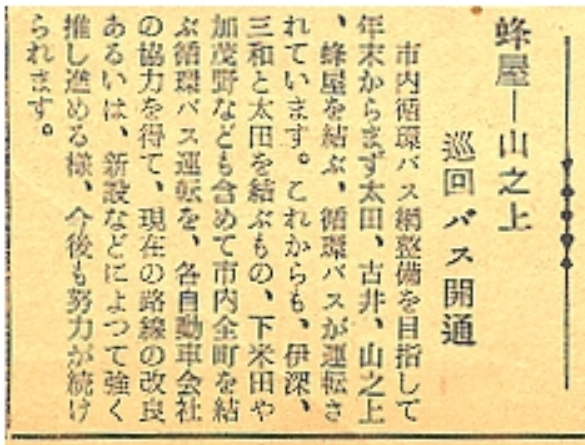 蜂屋ー山之上
巡回バス開通
市内循環バス網整備を目指して
年末からまず太田、古井、山之上
、蜂屋を結ぶ、循環バスが運転さ
れています。これからも、伊深、
三和と太田を結ぶもの、下米田や
加茂野なども含めて市内全町を結
ぶ循環バス運転を、各自動車会社
の協力を得て、現在の路線の改良
あるいは、新設などによつて強く
推し進める様、今後も努力が続け
られます。